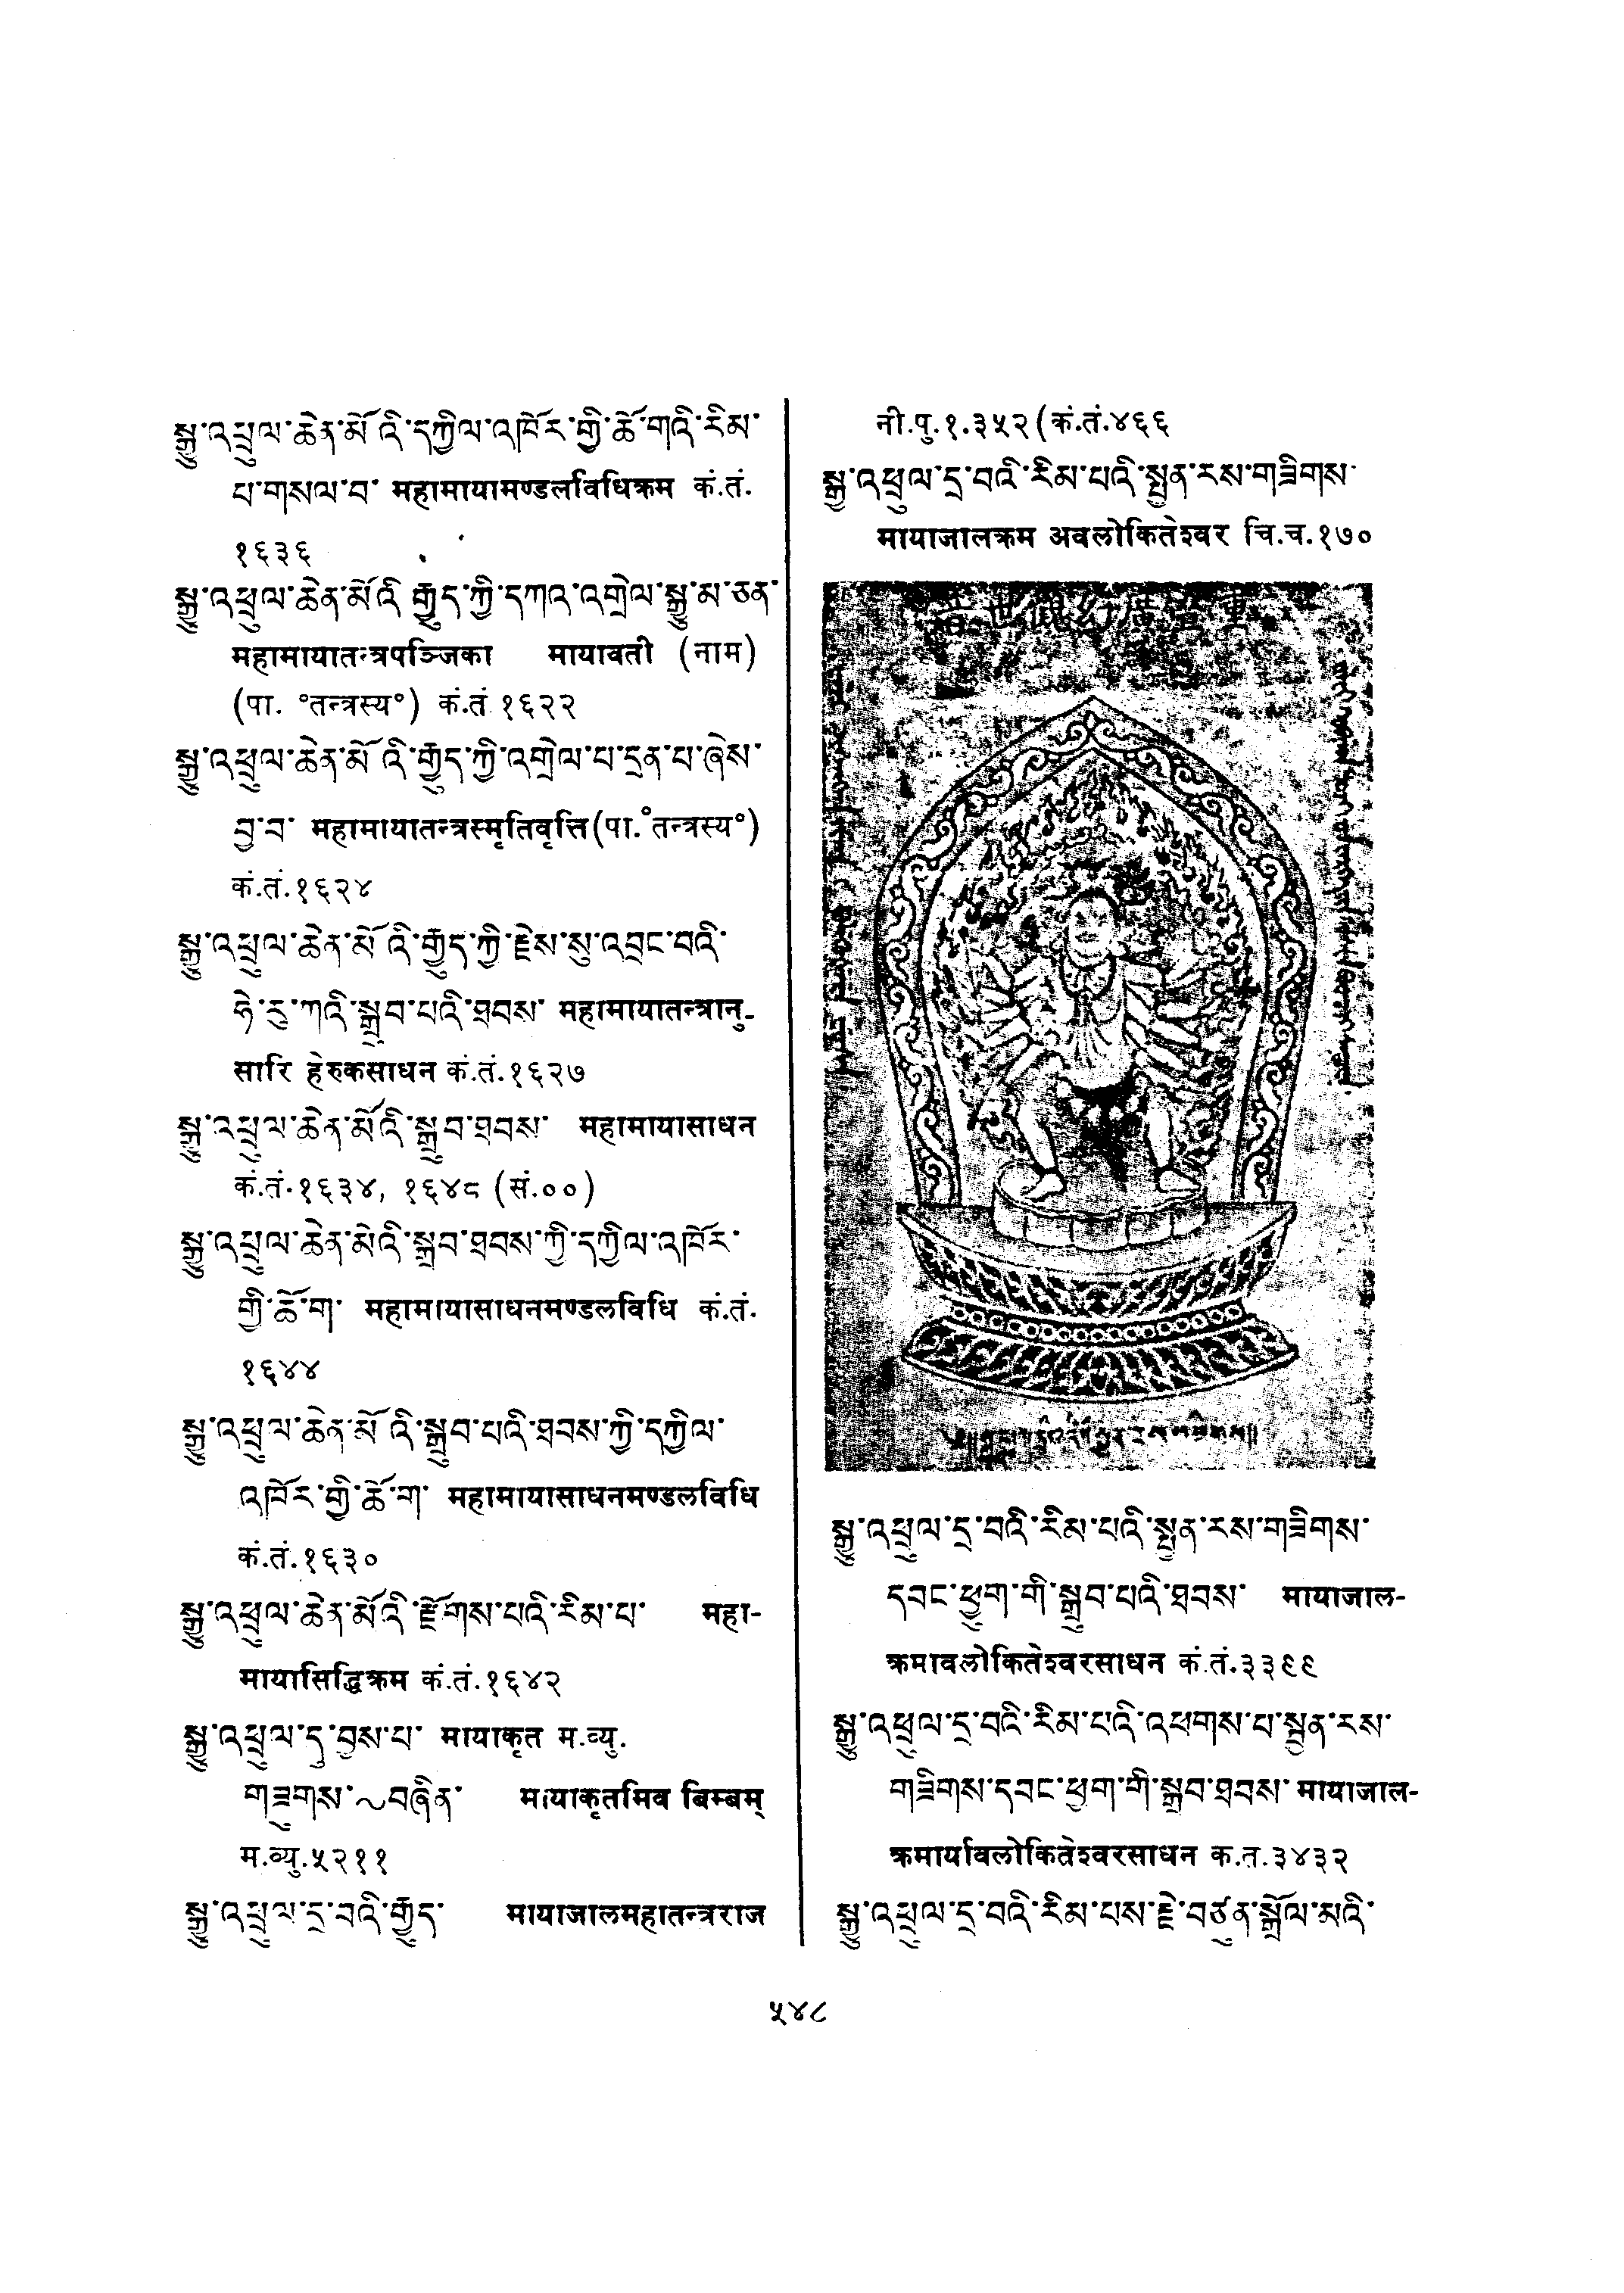 སྒྱུ་འཕྲུལ་ཆེན་མོ་འི་དཀྱིལ་འཁོར་གྱི་ཆོ་གའི་རིམ་
པ་གསལ་བ་ महामायामण्डलविधिक्रम कं.तं.
१६३६
སྒྱུ་འཕྲུལ་ཆེན་མོའི་རྒྱུད་ཀྱི་དཀའ་འགྲེལ་སྒྱུ་མ་ཅན་
महामायातन्त्रपञ्जिका मायावती (नाम)
(पा. °तन्त्रस्य°) कं.तं १६२२
སྒྱུ་འཕྲུལ་ཆེན་མོ་འི་རྒྱུད་ཀྱི་འགྲེལ་པ་དྲན་པ་ཞེས་
བྱ་བ་ महामायातन्त्रस्मृतिवृत्ति (पा.°तन्त्रस्य°)
कं.तं.१६२४
སྒྱུ་འཕྲུལ་ཆེན་མོ་འི་རྒྱུད་ཀྱི་རྗེས་སུ་འབྲང་བའི་
ཧེ་རུ་ཀའི་སྒྲུབ་པའི་ཐབས་ महामायातन्त्रानु-
सारि हेरुकसाधन कं.तं.१६२७
སྒྱུ་འཕྲུལ་ཆེན་མོའི་སྒྲུབ་ཐབས་ महामायासाधन
कं.तं.१६३४, १६४८ (सं.००)
སྒྱུ་འཕྲུལ་ཆེན་མེའི་སྒྲབ་ཐབས་ཀྱི་དཀྱིལ་འཁོར་
གྱི་ཆོ་ག་ महामायासाधनमण्डलविधि कं.तं.
१६४४
སྒྱུ་འཕྲུལ་ཆེན་མོ་འི་སྒྲུབ་པའི་ཐབས་ཀྱི་དཀྱིལ་
འཁོར་གྱི་ཆོ་ག་ महामायासाधनमण्डलविधि
कं.तं.१६३०
སྒྱུ་འཕྲུལ་ཆེན་མོའི་རྫོགས་པའི་རིམ་པ་ महा-
मायासिद्धिक्रम कं.तं.१६४२
སྒྱུ་འཕྲུལ་དུ་བྱས་པ་ मायाकृत म.व्यु.
གཟུགས་~བཞིན་ मायाकृतमिव बिम्बम्
म.व्यु.५२११
སྒྱུ་འཕྲུལ་དྲ་བའི་རྒྱུད་ मायाजालमहातन्त्रराज
नी.पु.१.३५२(कं.तं.४६६
སྒྱུ་འཕྲུལ་དྲ་བའི་རིམ་པའི་སྤྱན་རས་གཟིགས་
मायाजालक्रम अवलोकितेश्वर चि.च.१७०
སྒྱུ་འཕྲུལ་དྲ་བའི་རིམ་པའི་སྤྱན་རས་གཟིགས་
དབང་ཕྱུག་གི་སྒྲུབ་པའི་ཐབས་ मायाजाल-
क्रमावलोकितेश्वरसाधन कं.तं.३३९९
སྒྱུ་འཕྲུལ་དྲ་བའི་རིམ་པའི་འཕགས་པ་སྤྱན་རས་
གཟིགས་དབང་ཕྱུག་གི་སྒྲུབ་ཐབས་ मायाजाल-
क्रमार्यावलोकितेश्वरसाधन क.त.३४३२
སྒྱུ་འཕྲུལ་དྲ་བའི་རིམ་པས་རྗེ་བཙུན་སྒྲོལ་མའི་
५४८